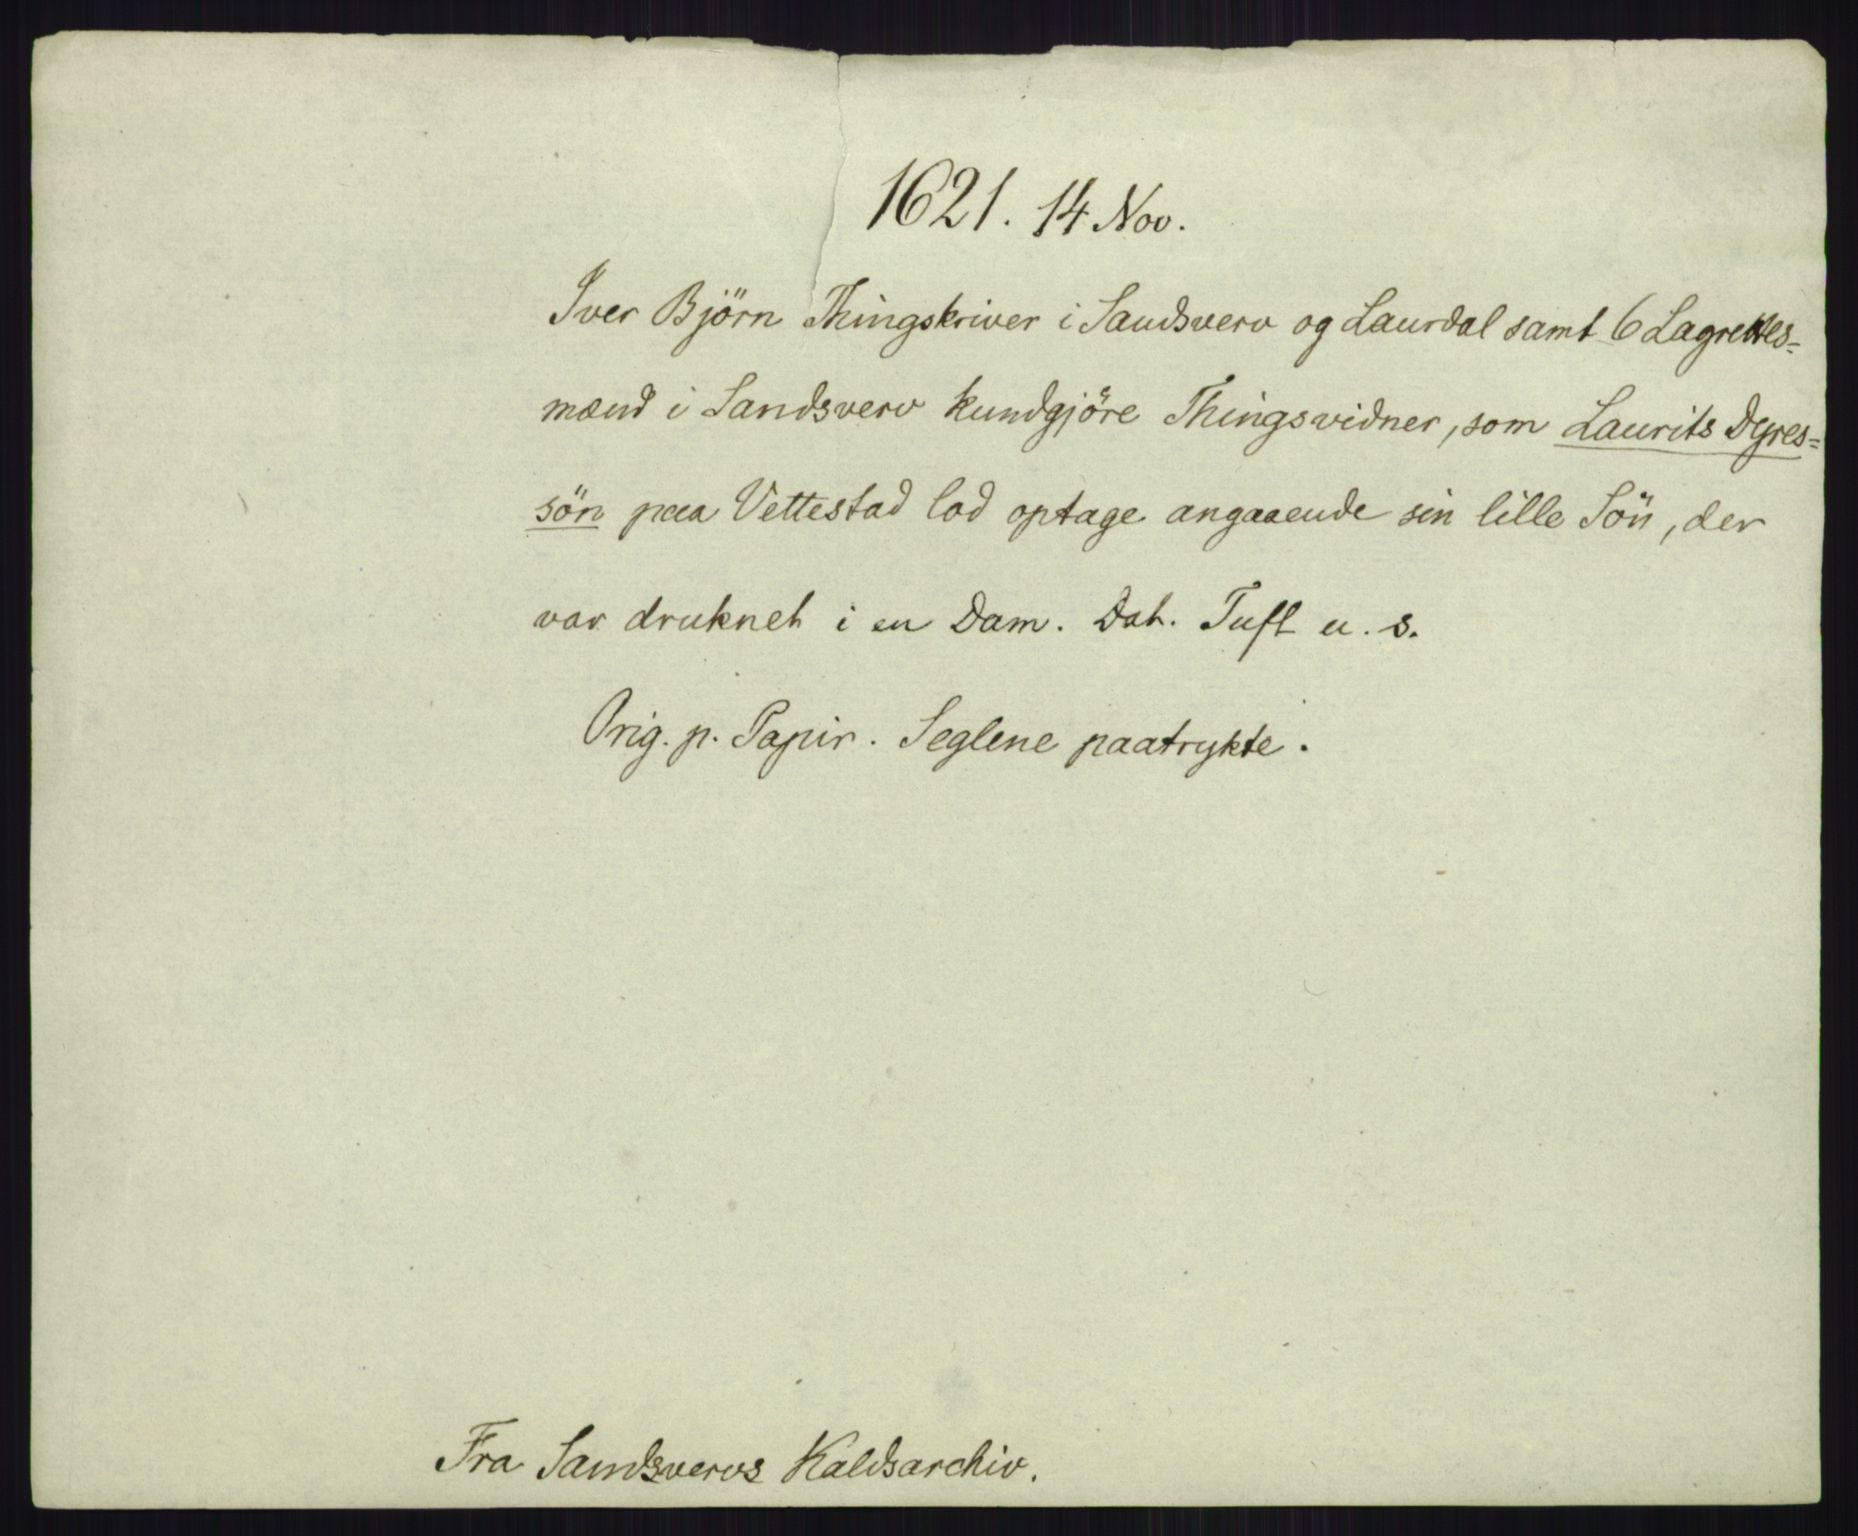 1621. 14 Nov.
Iver Björn Thingskriver i Sandsverv og Laurdal samt 6 Lagrettes=
mænd i Sandsverv kundgjöre Thingsvidner, som Laurits Dyres=
sön paa Vettestad lod optage angaaende sin lille Sön, der
var druknet i en Dam. Dat. Tuft u. s.
Orig. p. Papir. Seglene paatrykte.
Fra Sandsvervs Kaldsarchiv.